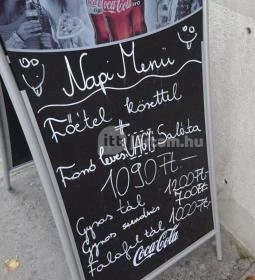 Coca-Cola
Napi Menü
Főétel körettel
+
Forró leves VAGY Saláta
1090 Ft-
Gyros tál 1200 Ft-
Gyros szendvics 700 Ft-
Falafel tál 1000 Ft-
Coca-Cola